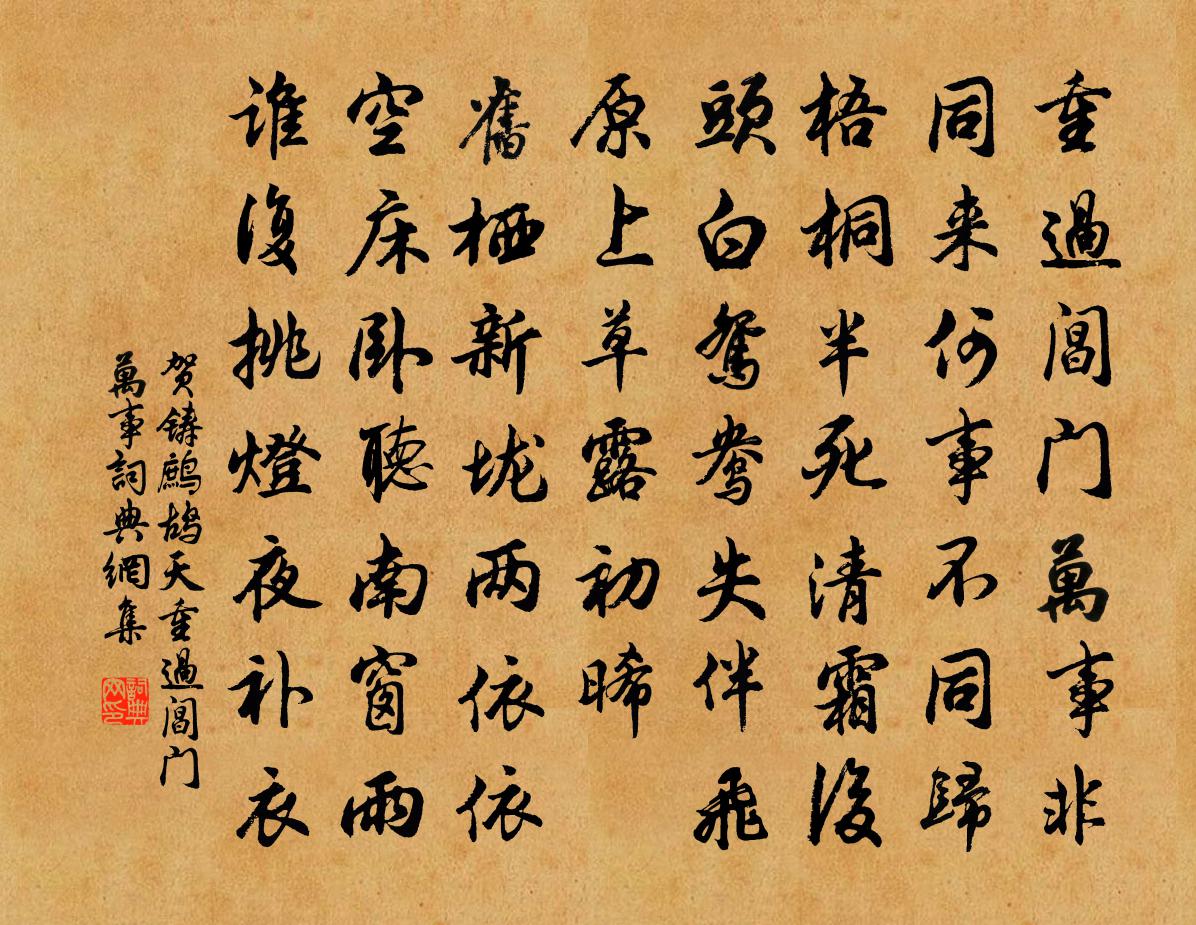 重過閶门萬事非
同来何事不同歸
梧桐半死清霜後
頭白鴛鴦失伴飛
原上草露初晞
舊栖新垅两依依
空床卧聽南窗雨
谁復挑燈夜补衣
贺铸鹧鸪天重過閶门
萬事詞典網集
詞典网印